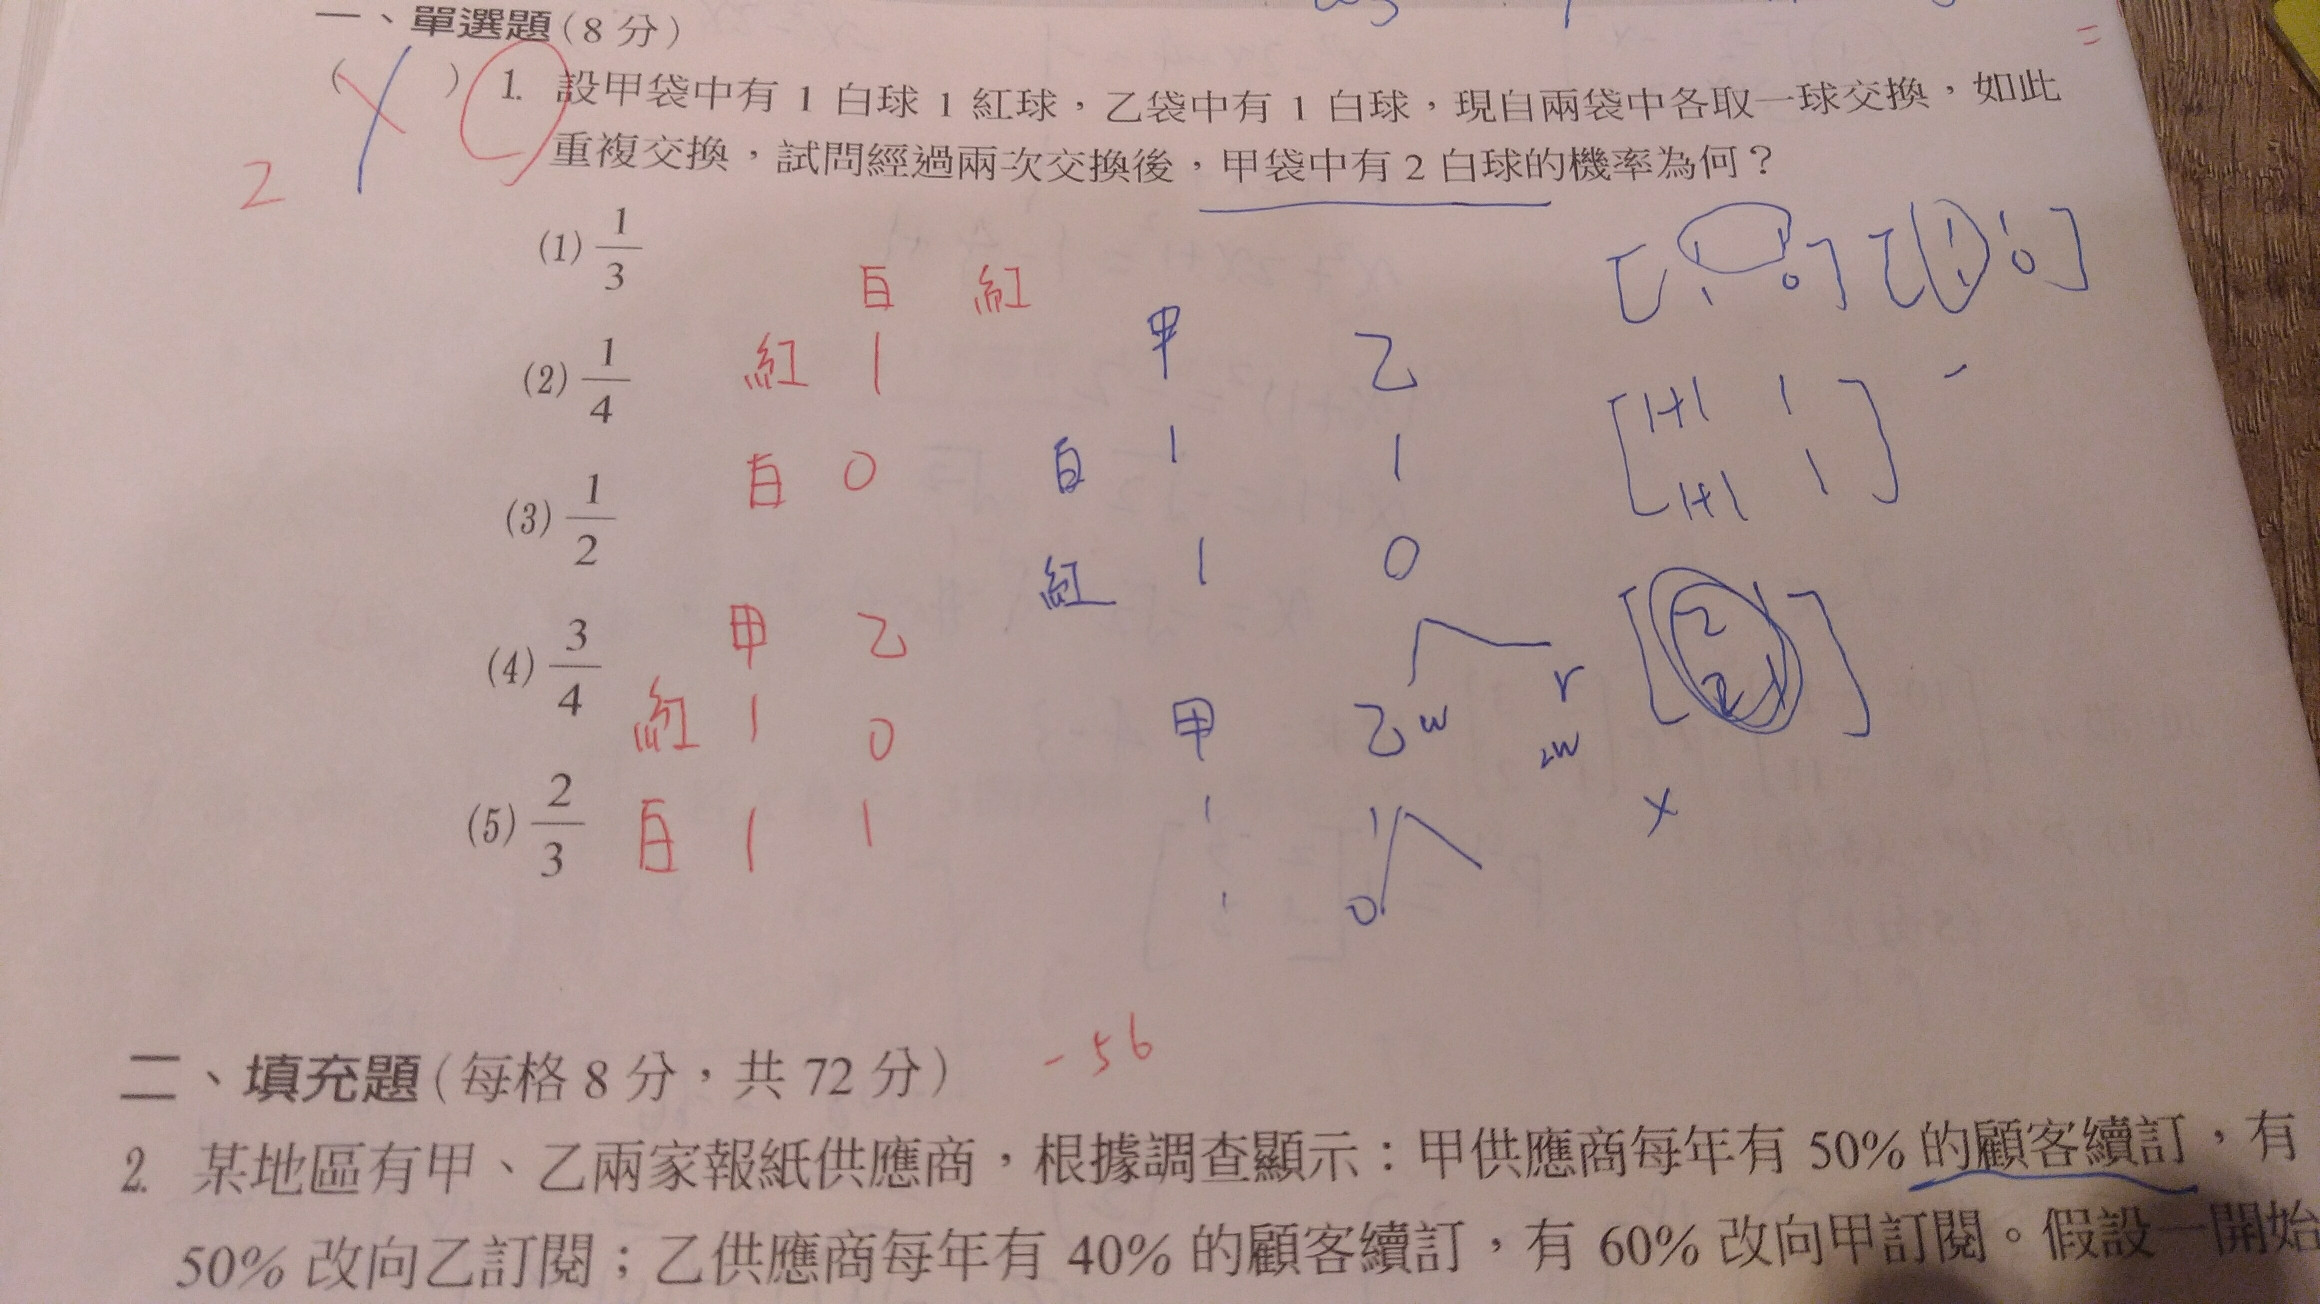 一、單選題(8分)
( ) 1. 設甲袋中有 1 白球 1 紅球，乙袋中有 1 白球，現自兩袋中各取一球交換，如此
重複交換，試問經過兩次交換後，甲袋中有 2 白球的機率為何？
2
(1) 1/3
(2) 1/4
(3) 1/2
(4) 3/4
(5) 2/3
白 紅
紅 1
白 0
甲 乙
紅 1 0
白 1 1
甲 乙
白 1 1
紅 1 0
甲 乙 w r
2w
1 1
1 0
x
[1 1
1 0] [1 1
1 0]
[1+1 1
1+1 1]
-56
二、填充題(每格 8 分，共 72 分)
2. 某地區有甲、乙兩家報紙供應商，根據調查顯示：甲供應商每年有 50% 的顧客續訂，有
50% 改向乙訂閱；乙供應商每年有 40% 的顧客續訂，有 60% 改向甲訂閱。假設一開始